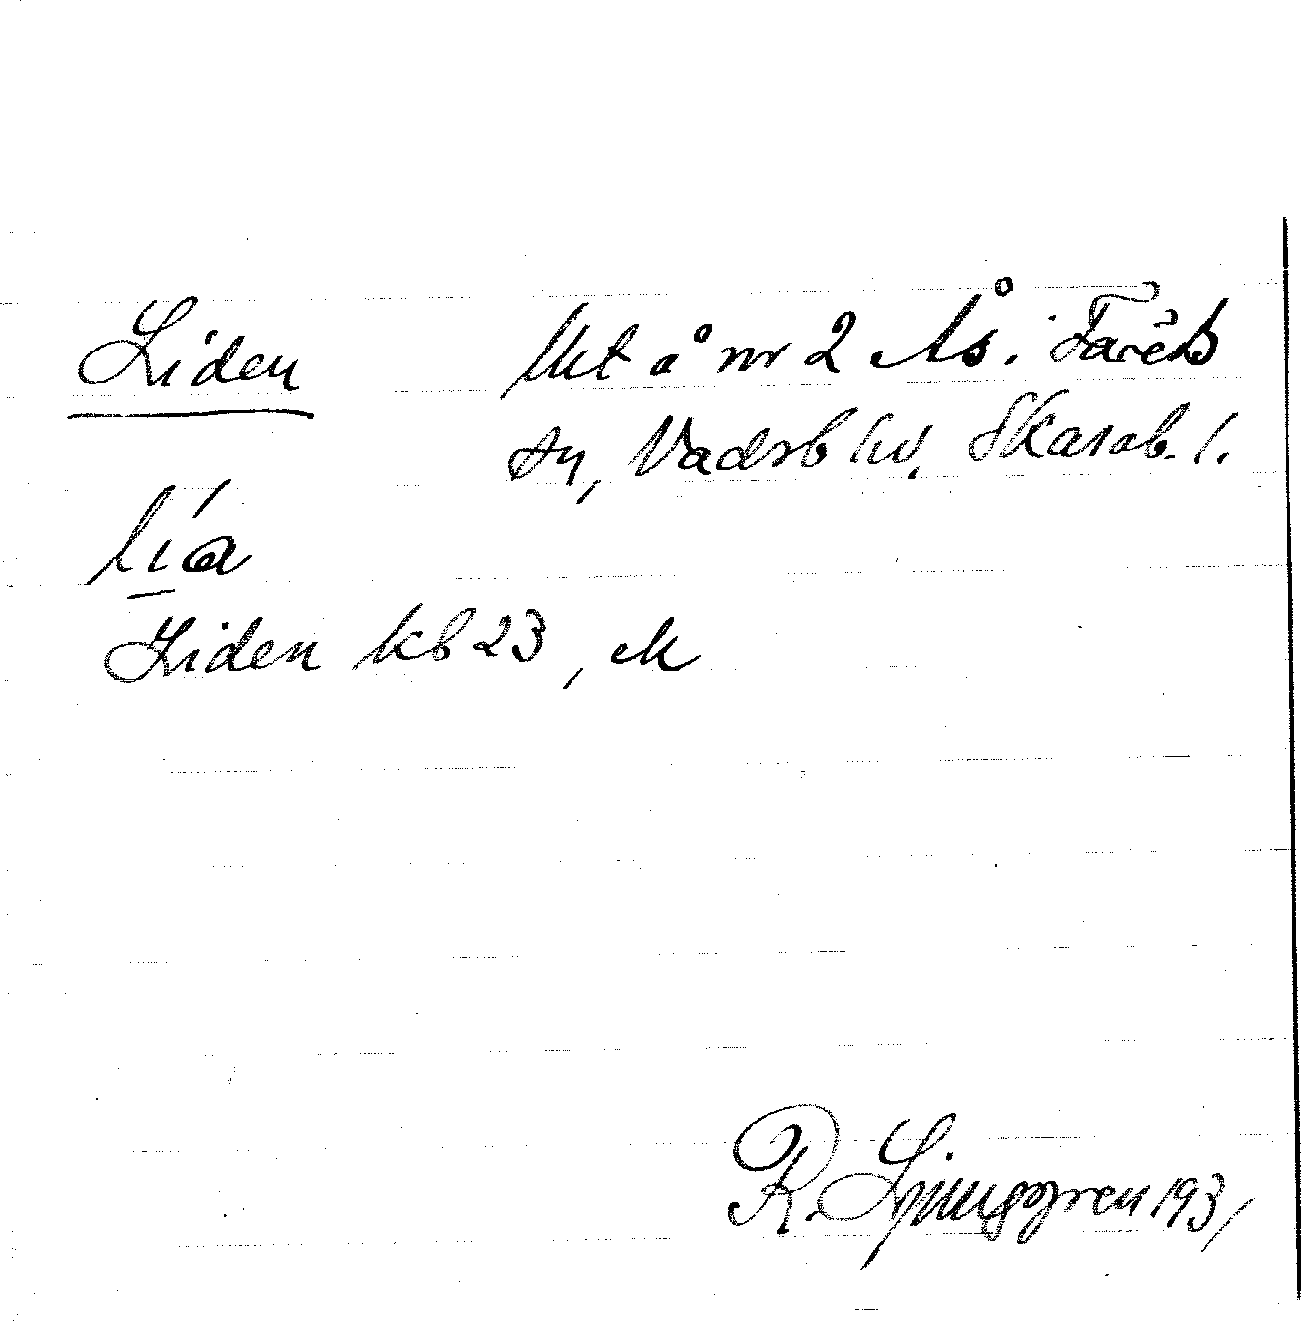 Liden lht å nr 2 Ås. Färeds
sn, Vadsb hd, Skarab. l.
lia
Liden kb 23, ek
R. Ljunggren 1931